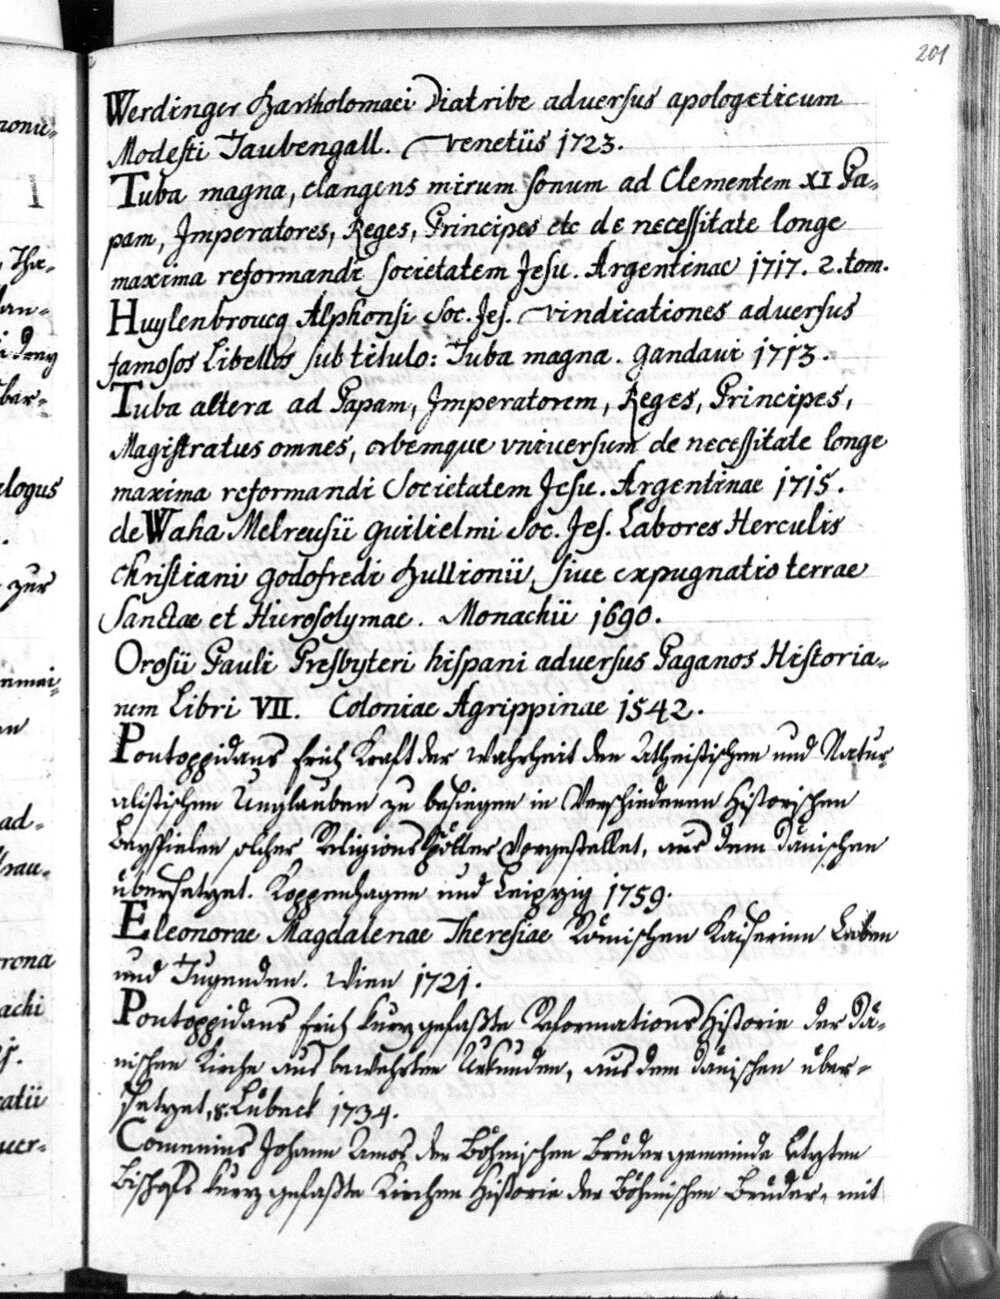 201
Werdinger Bartholomaei Diatribe adversus apologeticum
Modesti Taubengall. Venetiis 1723.
Tuba magna, clangens mirum sonum ad Clementem XI Pa-
pam, Imperatores, Reges, Principes etc de necessitate longe
maxima reformandi societatem Jesu. Argentinae 1717. 2. tom.
Huylenbroucq Alphonsi Soc. Jes. Vindicationes adversus
famosos Libellos sub titulo: Tuba magna. Gandavi 1713.
Tuba altera ad Papam, Imperatorem, Reges, Principes,
Magistratus omnes, orbemque universum de necessitate longe
maxima reformandi Societatem Jesu. Argentinae 1715.
de Waha Melreusii Guilielmi Soc. Jes. Labores Herculis
Christiani Godofredi Bullionii, sive expugnatio terrae
Sanctae et Hierosolymae. Monachii 1690.
Orosii Pauli Presbyteri hispani adversus Paganos Historia-
rum Libri VII. Coloniae Agrippinae 1542.
Pontoppidans Erich Kraft der Wahrheit den Atheistischen und Natur-
alistischen Unglauben zu besiegen in verschiedenen Historischen
Beyspielen solcher Religions Spötter vorgestellet, aus dem dänischen
übersetzet. Koppenhagen und Leipzig 1759.
Eleonorae Magdalenae Theresiae Römischen Kaiserinn Leben
und Tugenden. Wien 1721.
Pontoppidans Erich kurz gefaßte Reformations Historie der Dä-
nischen Kirche aus bewehrten Urkunden, aus dem dänischen über-
setzet, 8. Lübeck 1734.
Comenius Johann Amos der Böhmischen Brüder gemeinde Letzten
Bischofs kurz gefaßte Kirchen Historie der Böhmischen Brüder, mit